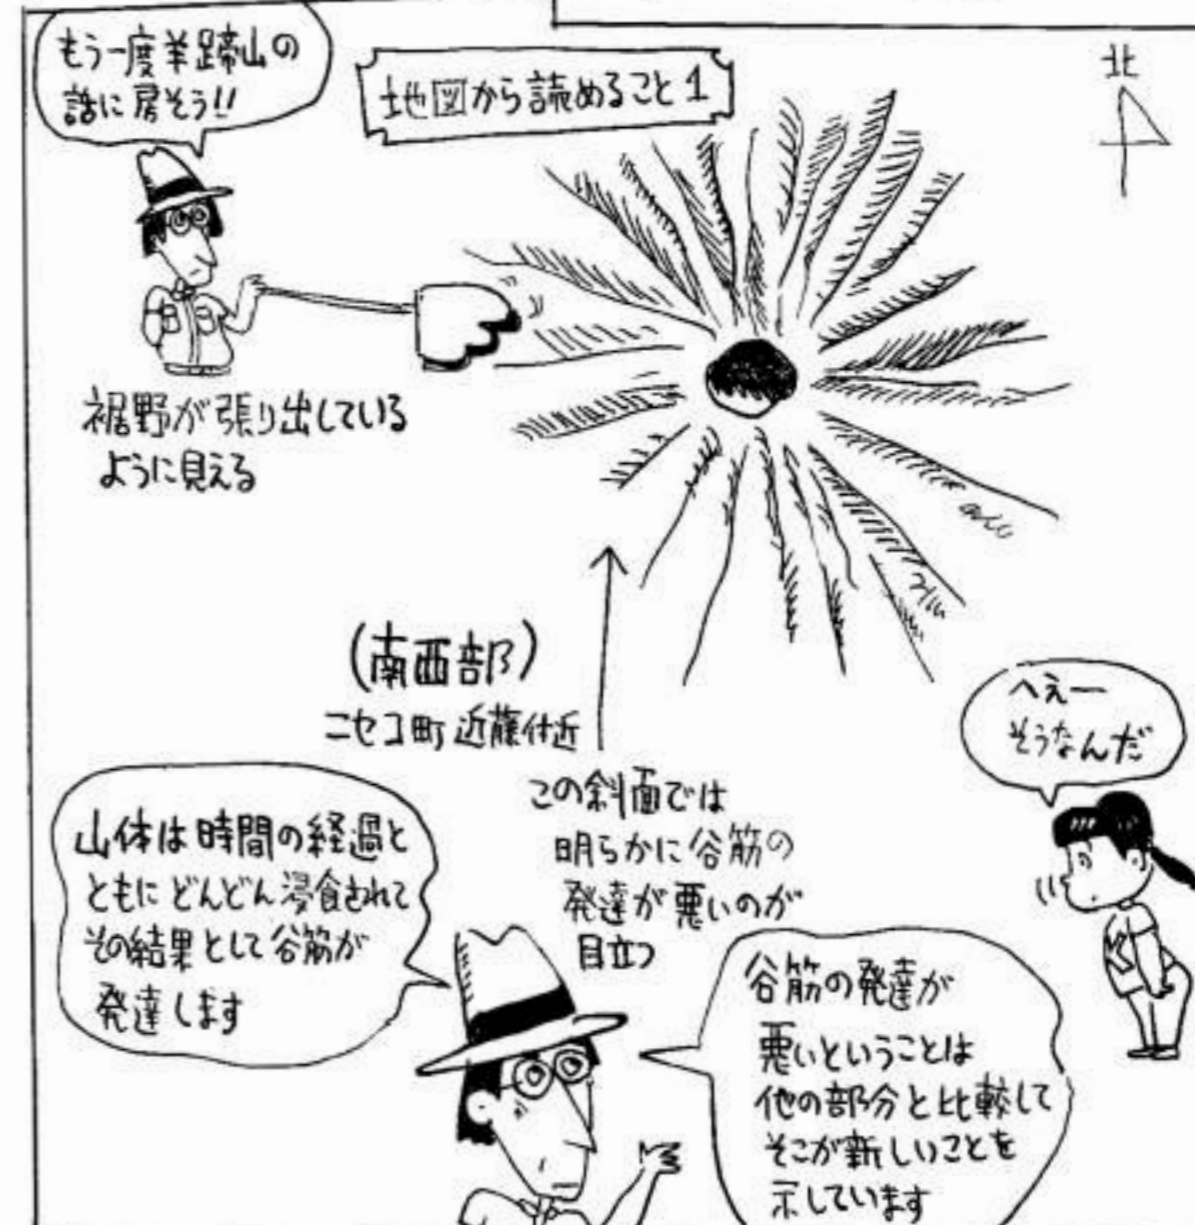 もう一度羊蹄山の
話に戻そう!!
地図から読めること1
北
裾野が張り出している
ように見える
(南西部)
ニセコ町近藤付近
この斜面では
明らかに谷筋の
発達が悪いのが
目立つ
へえー
そうなんだ
山体は時間の経過と
ともにどんどん浸食されて
その結果として谷筋が
発達します
谷筋の発達が
悪いということは
他の部分と比較して
そこが新しいことを
示しています